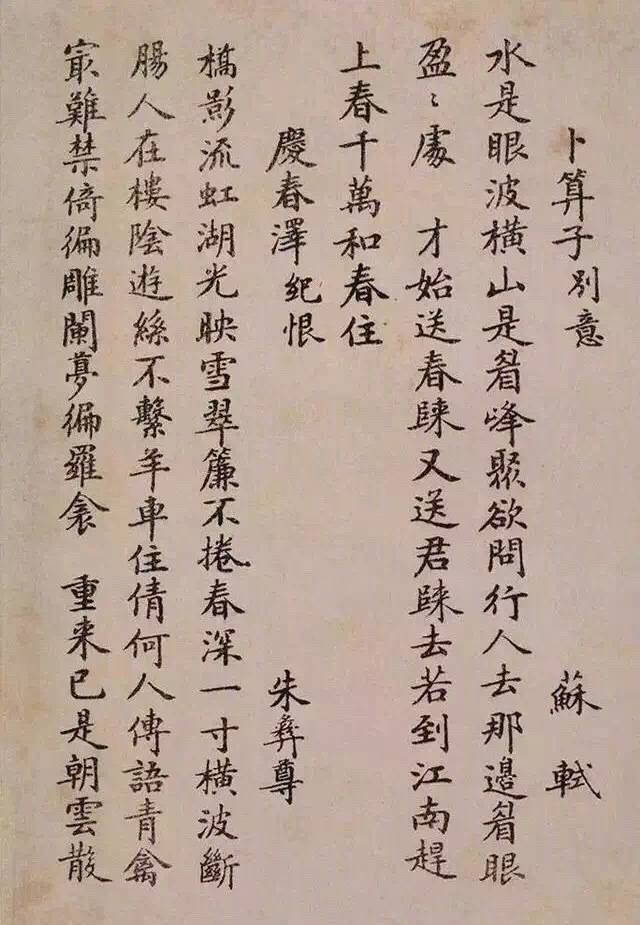 卜算子別意 蘇軾
水是眼波橫山是眉峰聚欲問行人去那邊眉眼
盈〻處 才始送春歸又送君歸去若到江南趕
上春千萬和春住
慶春澤紀恨 朱彝尊
橋影流虹湖光映雪翠簾不捲春深一寸橫波斷
腸人在樓陰遊絲不繫羊車住倩何人傳語青禽
最難禁倚徧雕闌夢徧羅衾 重来已是朝雲散